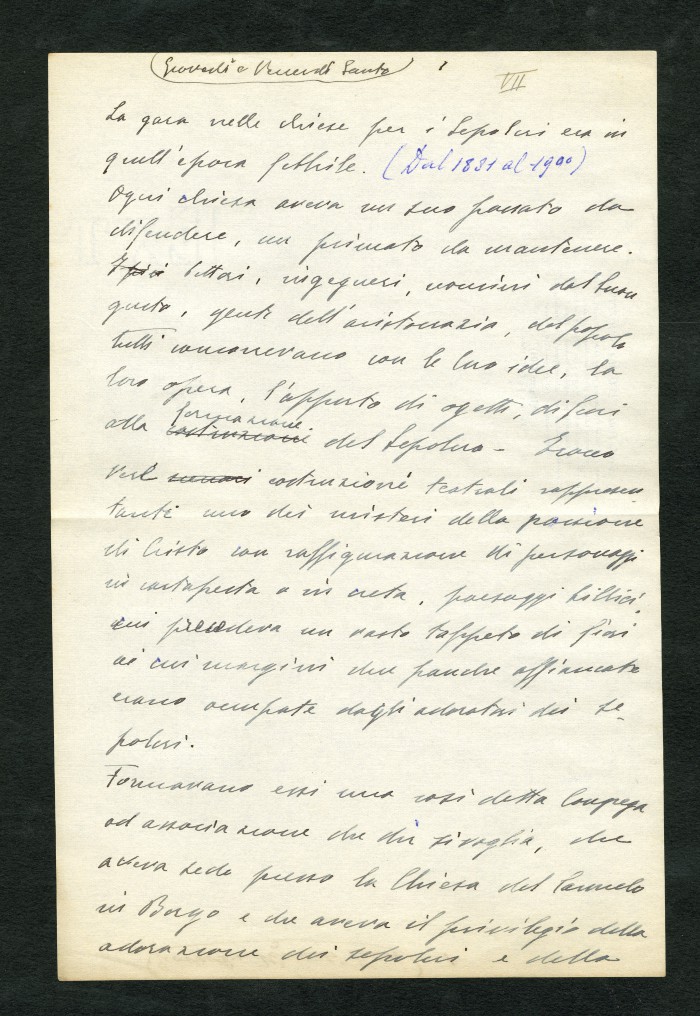 Giovedì e Venerdì Santo
1
VII
La gara nelle chiese per i Sepolcri era in
quell'epoca febbrile. (Dal 1831 al 1900)
Ogni chiesa aveva un suo passato da
difendere, un primato da mantenere.
Pittori, ingegneri, uomini dal buon
gusto, gente dell'aristocrazia, del popolo
tutti concorrevano con le loro idee, la
loro opera, l'apporto di ogetti, di fiori
alla costruzione formazione del Sepolcro - Erano
costruzioni teatrali rappresen
tanti uno dei misteri della passione
di Cristo con raffigurazione di personaggi
in cartapesta o in creta, paesaggi biblici,
cui precedeva un vasto tappeto di fiori
ai cui margini due panche affiancate
erano occupate dagli adoratori dei se-
polcri.
Formavano essi una così detta Congrega
od associazione che dir si voglia, che
aveva sede presso la Chiesa del Carmelo
in Borgo e che aveva il privilegio della
adorazione dei sepolcri e della